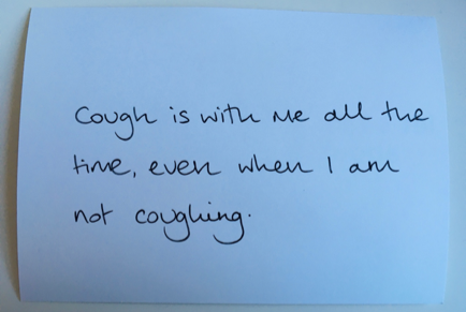 Cough is with me all the
time, even when I am
not coughing.